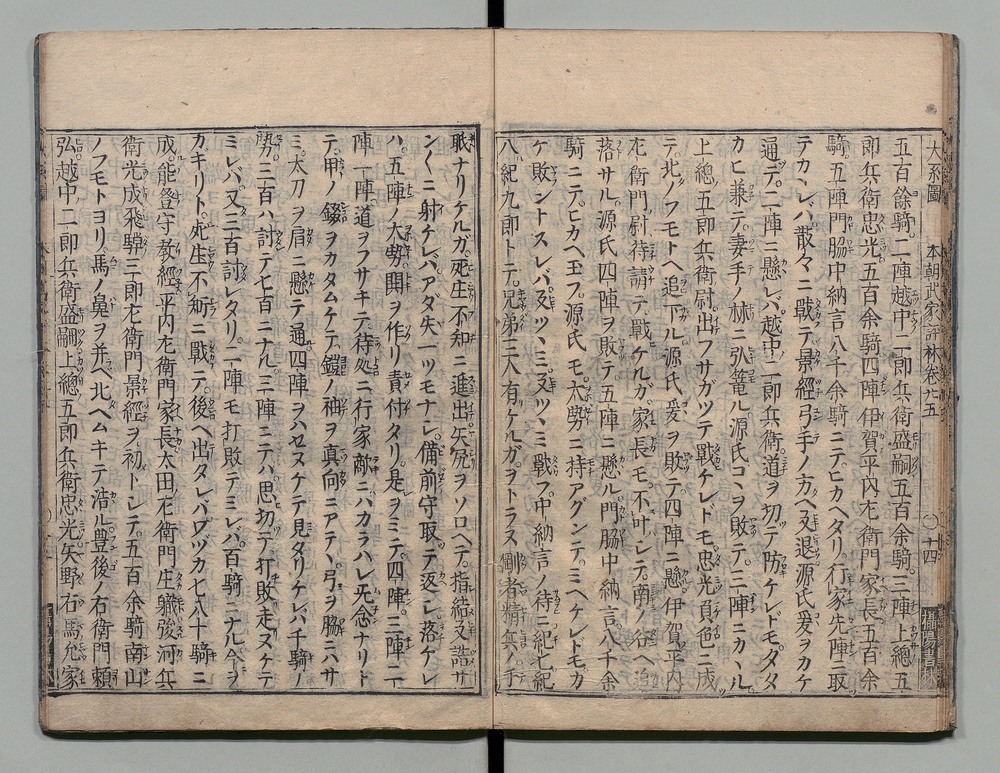 大系圖　本朝武家評林巻廿五　〇十四
五百餘騎二陣越中二郎兵衛盛嗣五百余騎三陣上總五
郎兵衛忠光五百余騎四陣伊賀平内左衛門家長五百余
騎五陣門脇中納言八千余騎ニテヒカヘタリ行家先陣ニ取
テカヽレハ散々ニ戰テ景經弓手ノカヘ引退源氏爰ヲカケ
通テ二陣ニ懸レバ越中二郎兵衛道ヲ切テ防ケレドモタタ
カヒ兼テ妻手ノ林ニ引篭ル源氏コヽヲ敗テ三陣ニカヽル
上總五郎兵衛尉出フサガツテ戰ケレドモ忠光負色ニ成
テ北ノフモトヘ追下ル源氏爰ヲ敗テ四陣ニ懸伊賀平内
左衛門尉待請テ戰ケルガ家長モ不叶シテ南ノ谷ヘ追
落サル源氏四陣ヲ敗テ五陣ニ懸ル門脇中納言八千余
騎ニテヒカヘ玉フ源氏モ大勢ニ持アグンテミヘケレトモカ
ケ敗ントスレバ引ツヽミ引ツヽミ戰フ中納言ノ待ニ紀七紀
八紀九郎トテ兄弟三人有ケルガヲトラヌ剛者精兵ノ手
聴ナリケルガ死生不知ニ進出矢尻ヲソロヘテ指結引詰サ
ンくニ射ケレバアダ矢一ツモナシ備前守取テ返シ落ケレ
ハ五陣ノ大勢閧ヲ作リ責付タリ是ヲミテ四陣三陣二
陣一陣道ヲフサキテ待処ニ行家敵ニハカラハレ无念ナリト
テ甲ノ錣ヲカタムケテ鎧ノ袖ヲ真向ニアテヽ弓ヲ脇ニハサ
ミ太刀ヲ肩ニ懸テ通四陣ヲハセヌケテ見タリケレバ千騎ノ
勢三百ハ討テ七百ニナル三陣ニテハ思切テ打敗走ヌケテ
ミレバ又三百討レタリ二陣モ打敗テミレバ百騎ニナル今ヲ
カキリト死生不知ニ戰テ後ヘ出タレバワヅカ七八十騎ニ
成能登守教經平内左衛門家長太田左衛門庄職後河兵
衛光成飛騨三郎左衛門景經ヲ初トシテ五百余騎南山
ノフモトヨリ馬ノ鼻ヲ并ヘ北ヘムキテ浩ル豊後ノ右衛門頼
弘越中二郎兵衛盛嗣上總五郎兵衛忠光矢野右馬允家